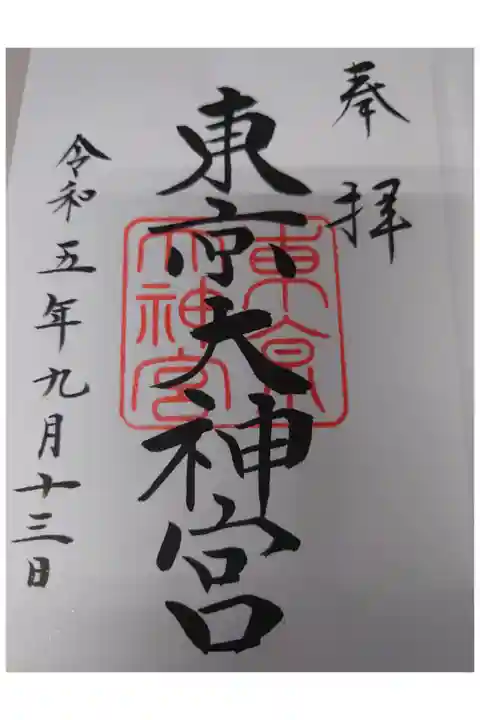 奉拝
東京大神宮
東京
大神宮
令和五年九月十三日